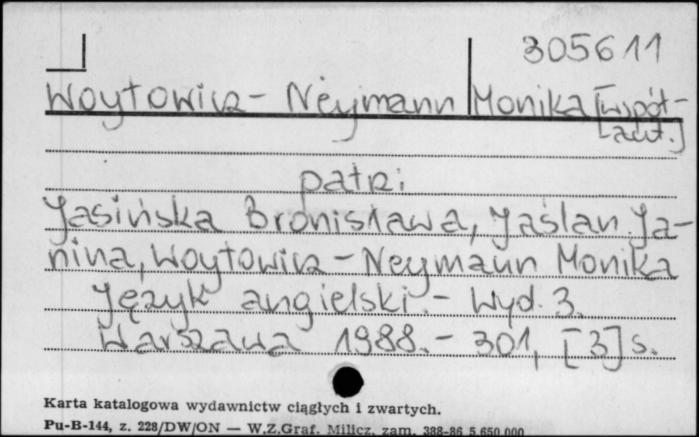 305611
Woytowicz - Neymann Monika [współ-
aut.]
patrz:
Jasińska Bronisława, Jaślan Ja-
nina, Woytowicz - Neymann Monika
Język angielski. - Wyd. 3.
Warszawa 1988. - 301, [3] s.
Karta katalogowa wydawnictw ciągłych i zwartych.
Pu-B-144, z. 228/DW/ON — W.Z.Graf. Milicz, zam. 388-86 5.650.000